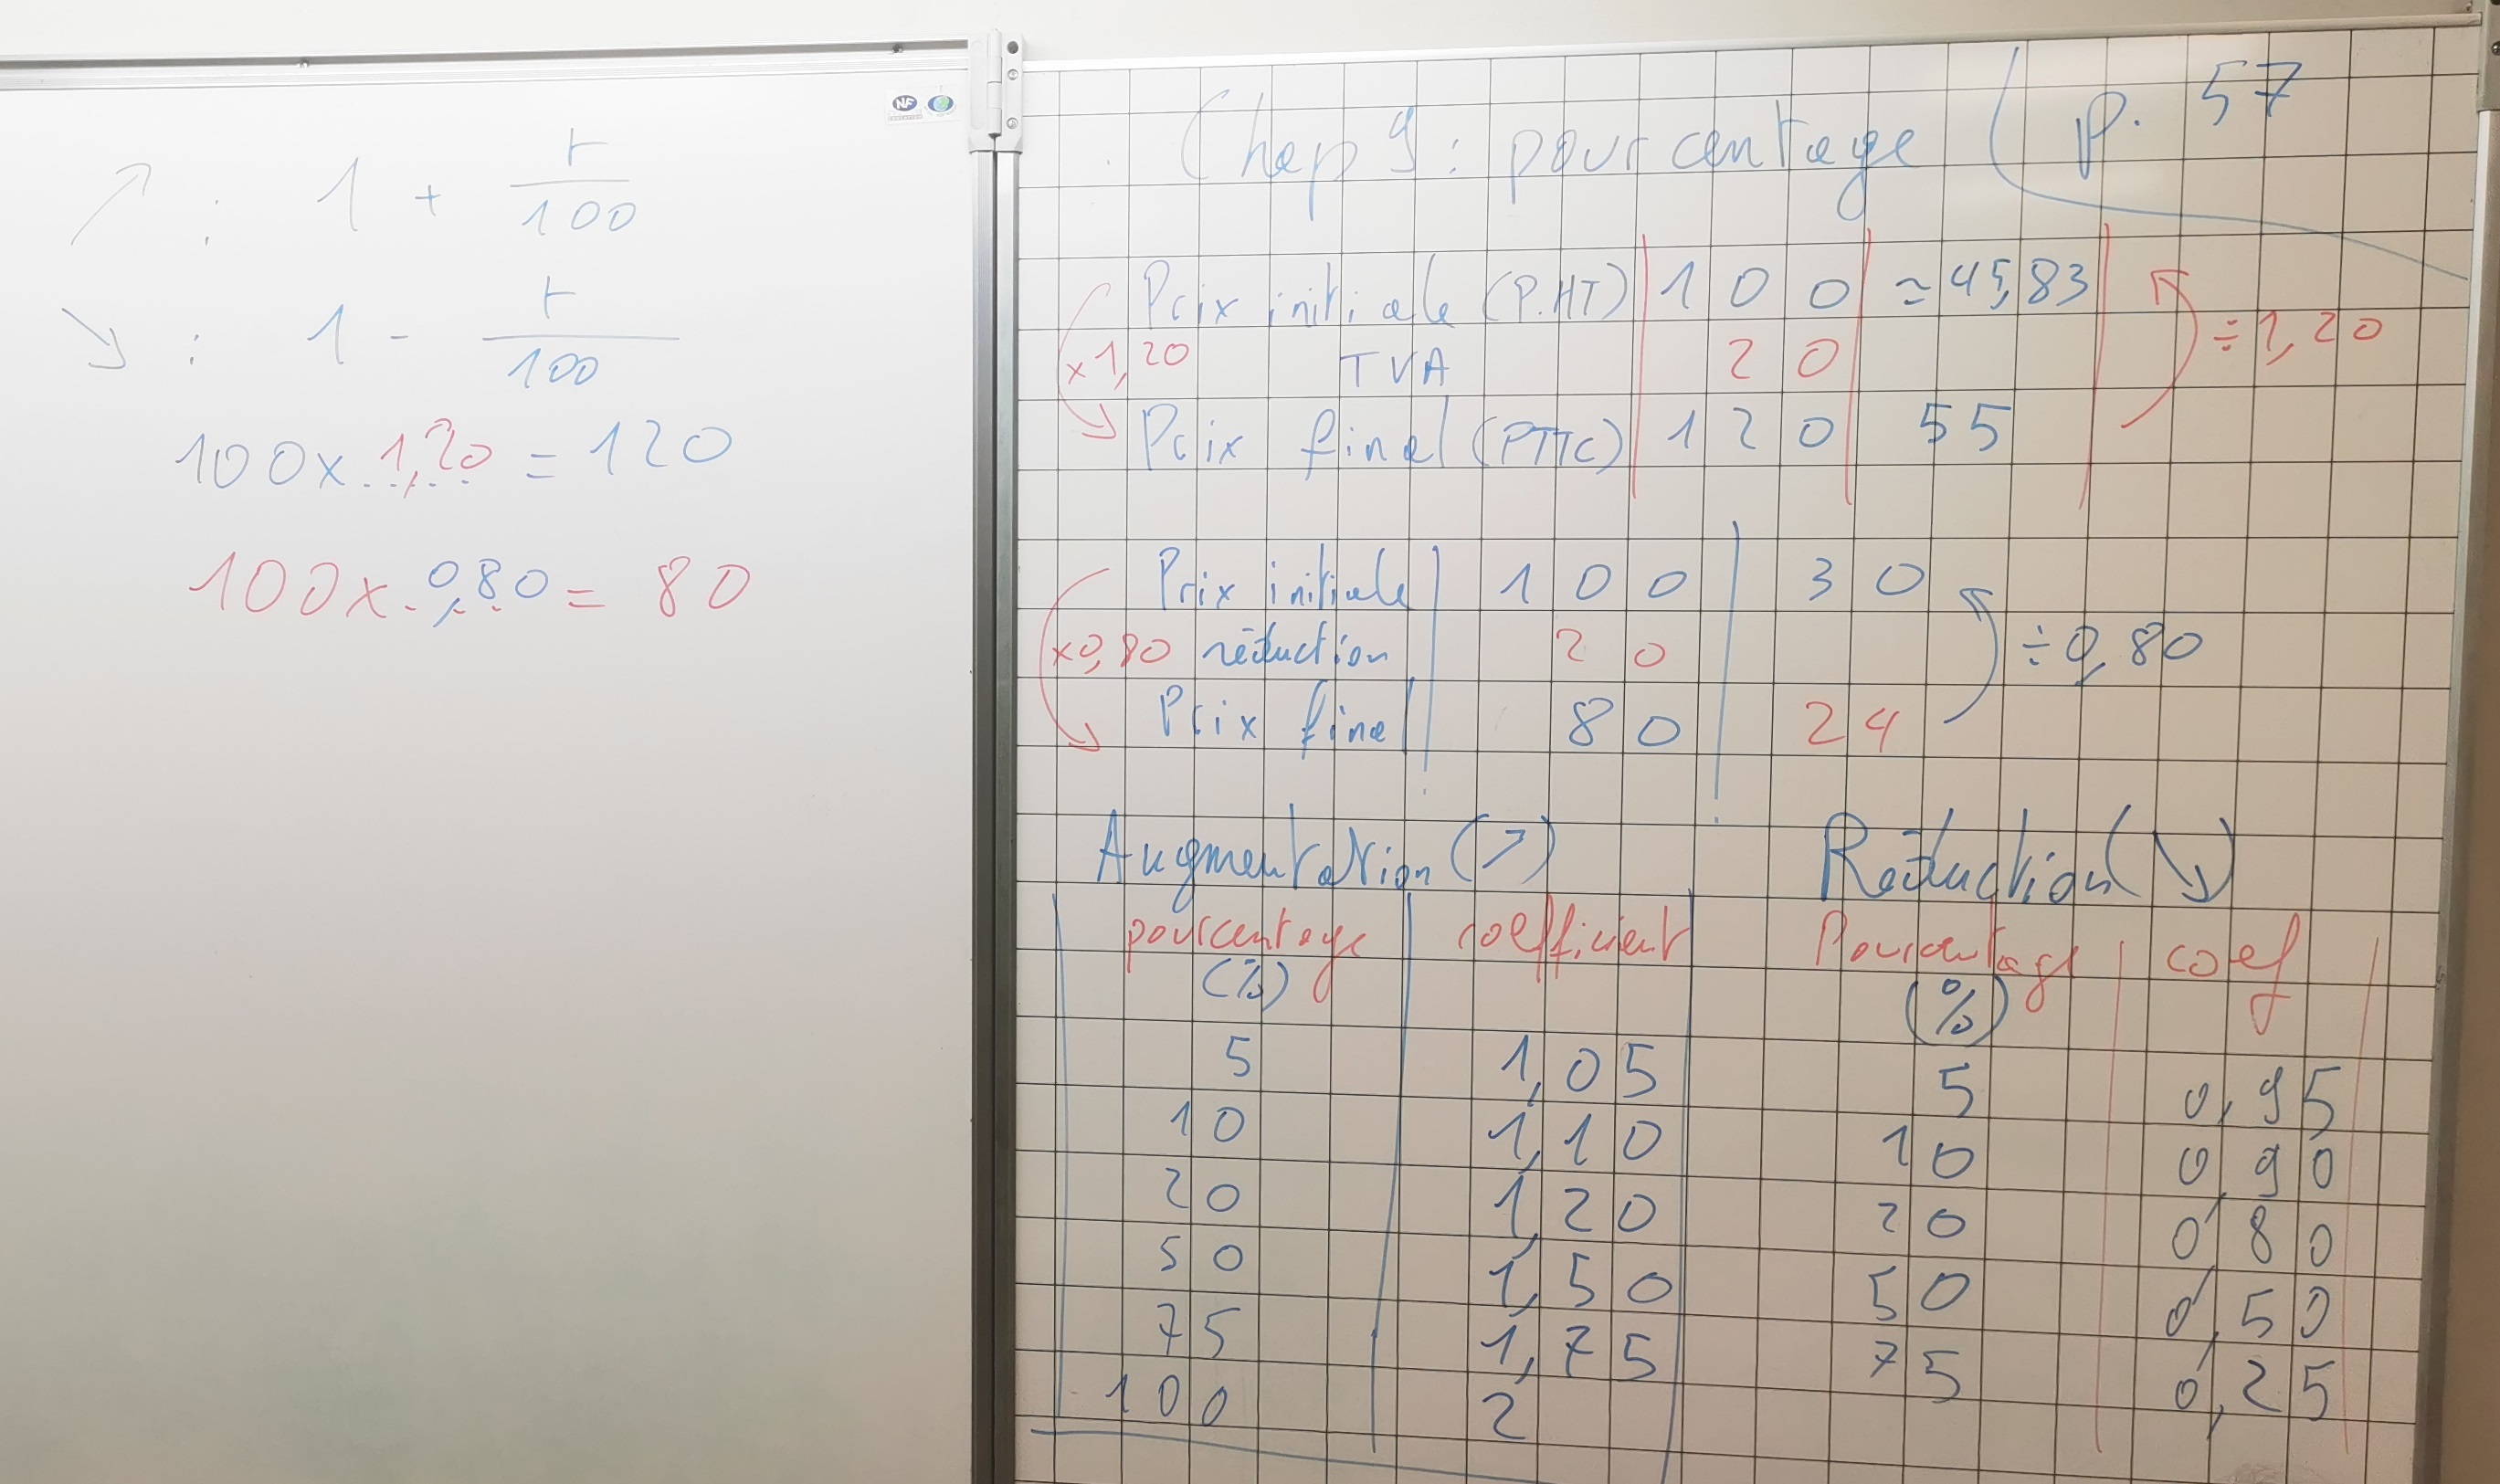 ↗ : 1 + t/100
↘ : 1 - t/100
100 x 1,20 = 120
100 x 0,80 = 80
NF
Chap 9 : pourcentage ( p. 57
Prix initiale (P.HT) | 100 | ≃ 45,83 |
x1,20 TVA 20 ÷1,20
Prix final (PTTC) | 120 | 55
Prix initiale | 100 | 30
x0,80 réduction 20 ÷0,80
Prix final | 80 | 24
Augmentation (↗) Réduction (↘)
pourcentage | coefficient | Pourcentage | coef
(%) (%)
5 1,05 5 0,95
10 1,10 10 0,90
20 1,20 20 0,80
50 1,50 50 0,50
75 1,75 75 0,25
100 2